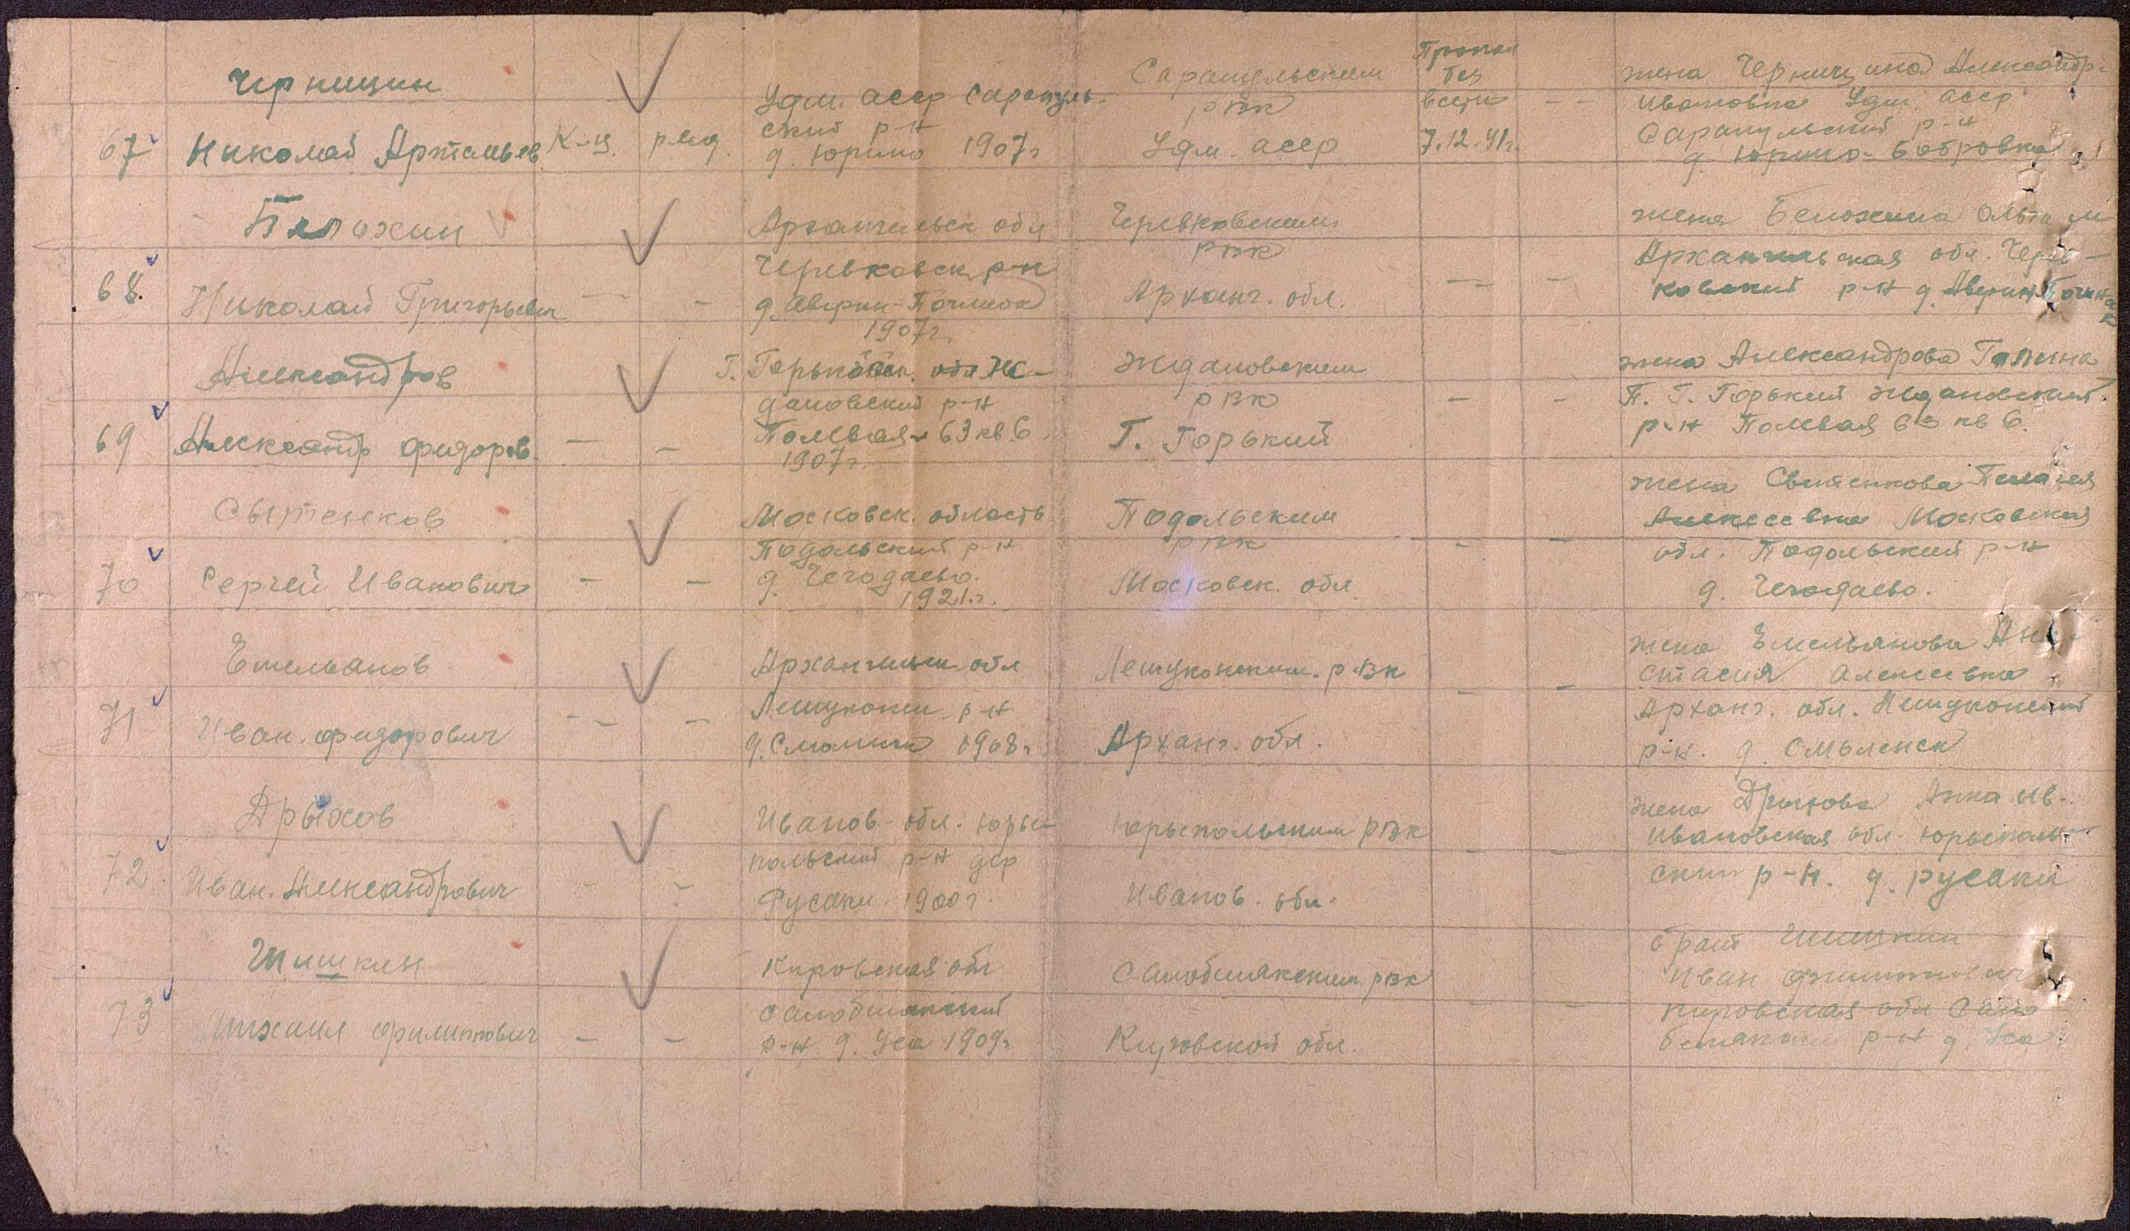 67 Черницин
Николай Артамьев.
К-ц. ряд.
Удм. асср Сарапуль-
ский р-н
д. Юрино 1907г
Сарапульским
рвк
Удм. асср
Пропал
без
вести
7.12.41г.
жена Черницина Александр.
Ивановна Удм. асср
Сарапульский р-н
д. Юрино-Бобровка
68. Белохин
Николай Григорьевич
Архангельск обл
Черевковск р-н
д. Аверин-Починок
1907г.
Черевковским
рвк
Арханг. обл.
жена Белохина Ольга М
Архангельская обл. Черев-
ковский р-н д. Аверин Починок
69 Александров
Александр Федоров.
Г. Горький Ж-
дановский р-н
Полевая 63 кв 6
1907г.
Ждановским
рвк
Г. Горький
жена Александрова Галина
П. Г. Горький Ждановский
р-н Полевая 63 кв 6.
70 Сытенков
Сергей Иванович
Московск. область
Подольский р-н
д. Чегодаево.
1921.г.
Подольским
рвк
Московск. обл.
жена Пелагея
Алексеевна Московская
обл. Подольский р-н
д. Чегодаево.
71 Емельянов
Иван. Федорович
Архангельск обл
Лешуконск р-н
д. 1908г
Лешуконским. рвк
Арханг. обл.
жена Емельянова Ана-
стасия Алексеевна
Арханг. обл. Лешуконский
р-н. д. Смоленск
72. Дрыхов
Иван. Александрович
Иванов- обл. Юрье-
польский р-н дер
Русаки 1900г.
Юрьепольским рвк
Иванов. обл.
жена Анна Ив-
Ивановская обл. Юрьеполь-
ский р-н. д. русаки
73 Шишкин
Михаил Филиппович
Кировская обл
Салобелякский
р-н д. Уса 1909г
Салобелякским рвк
Кировской обл.
брат Шишкин
Иван Филиппович
Кировская обл Сало
белякский р-н д Уса